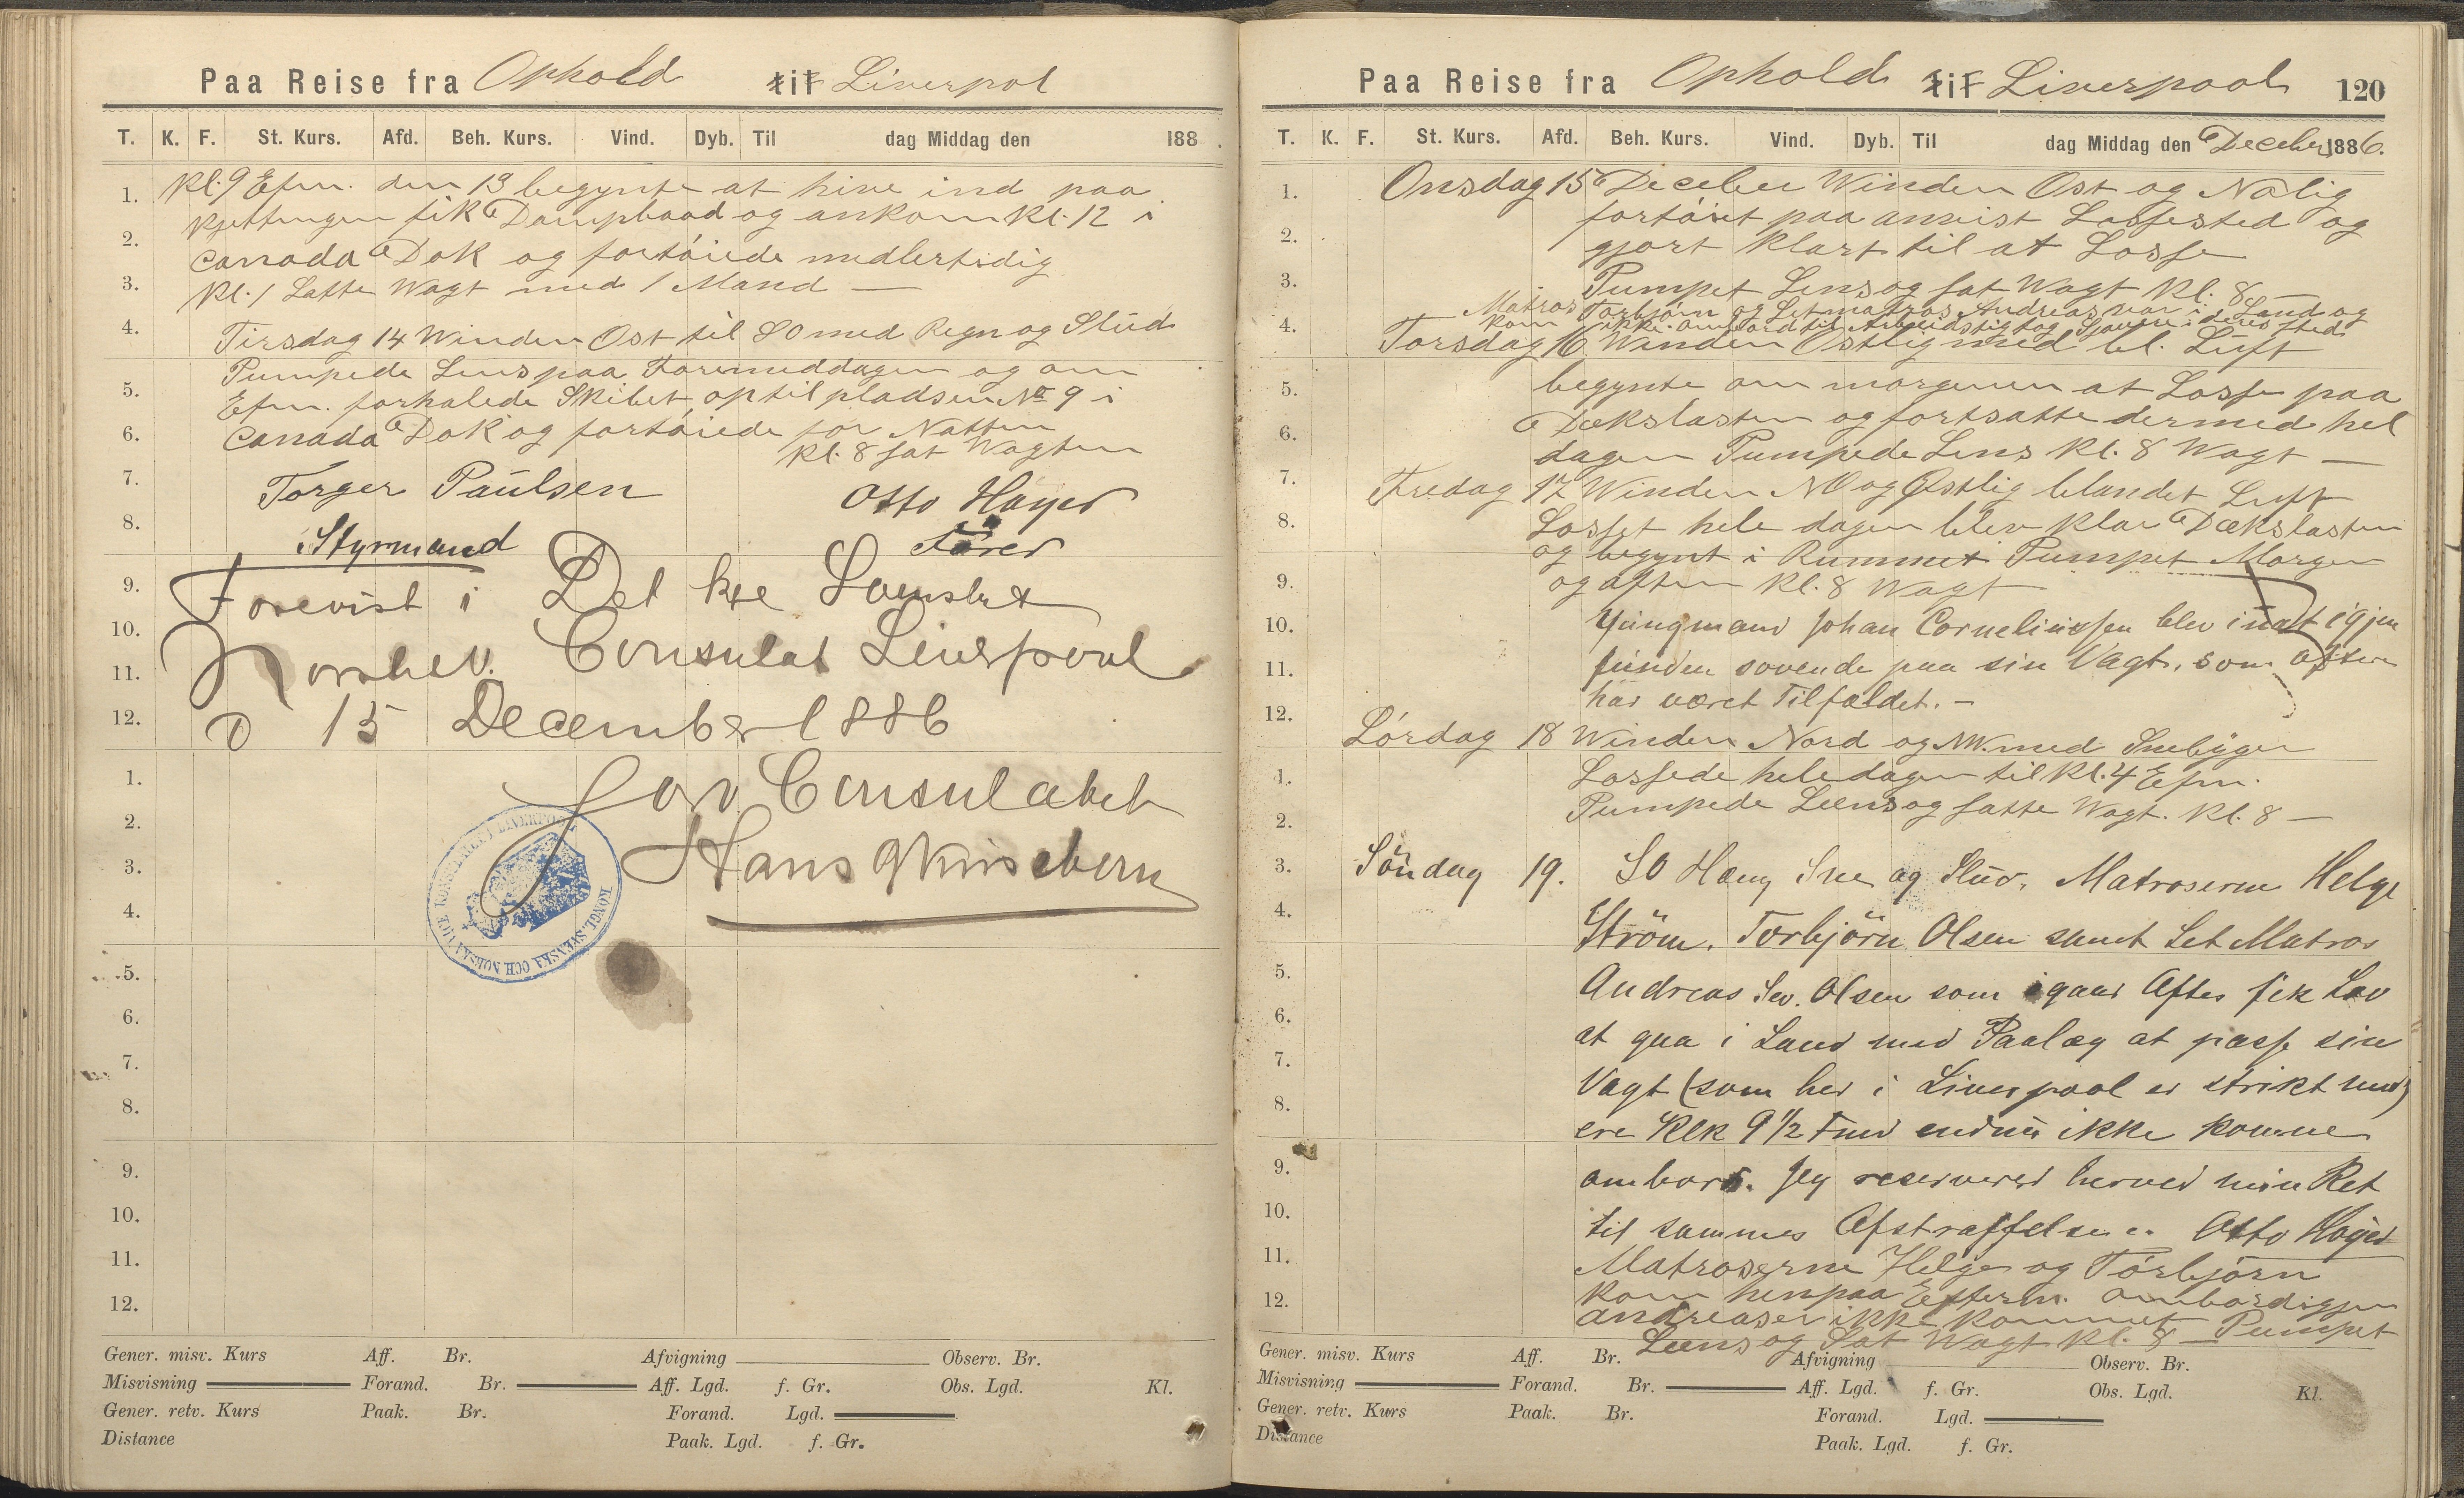 Paa Reise fra Ophold til Liverpol
T. K. F. St. Kurs. Afd. Beh. Kurs. Vind. Dyb. Til dag Middag den 188 .
Kl. 9 Efm. den 13 begynte at hive ind paa
Kjettingen fik Dampbaad og ankom Kl. 12 i
Canada Dok og fortøiede midlertidig
Kl. 1 Satte Wagt med 1 Mand —
Tirsdag 14 Winden Ost til SO med Regn og Slud
Pumpede Lens paa Formiddagen og om
Efm. forhalede Skibet op til pladsen No 9 i
Canada Dok og fortøiede for Natten
Kl. 8 sat Wagten
Torger Paulsen Otto Høyer
Styrmand Fører
Forevist i Det kge Svenske
Norske V. Consulat Liverpool
D 15 December 1886
For Consulatet
Hans
KONGL. SVENSKA OCH NORSKA VICE KONSULATET I LIVERPOOL
1.
2.
3.
4.
5.
6.
7.
8.
9.
10.
11.
12.
1.
2.
3.
4.
5.
6.
7.
8.
9.
10.
11.
12.
Gener. misv. Kurs Aff. Br. Afvigning Observ. Br.
Misvisning Forand. Br. Aff. Lgd. f. Gr. Obs. Lgd. Kl.
Gener. retv. Kurs Paak. Br. Forand. Lgd.
Distance Paak. Lgd. f. Gr.
Paa Reise fra Ophold til Liverpool 120
T. K. F. St. Kurs. Afd. Beh. Kurs. Vind. Dyb. Til dag Middag den Deceber 1886.
Onsdag 15 Deceber Winden Ost og Nolig
fortøiet paa anvist Lossested og
gjort klart til at Losse
Pumpet Lens og sat Wagt Kl. 8 —
Matros Torbjørn og Letmatros Andreas var i Land og
kom ikke ombord til Arbeidstig tog i deres sted
Torsdag 16 Winden Ostlig med bl. Luft
begynte om morgenen at Losse paa
Dækslasten og fortsatte dermed hel
dagen Pumpede Lens Kl. 8 Wagt —
Fredag 17 Winden NO og Østlig blandet Luft
Losset hele dagen blev klar Dækslasten
og begynt i Rummet Pumpet Morgen
og aften Kl. 8 Wagt
Jungmand Johan Corneliussen blev inat igjen
funden sovende paa sin Vagt, som oftere
har været Tilfældet. —
Lørdag 18 Winden Nord og NW. med Snebyger
Lossede hele dagen til Kl. 4 Efm.
Pumpede Læns og satte Wagt. Kl. 8 —
Söndag 19. SO Hæng Sne og Slud. Matroserne Helge
Ström, Torbjörn Olsen samt Let Matros
Andreas Sev. Olsen som igaar Aftes fik Lov
at gaa i Land med Paalæg at passe sin
Vagt (som her i Liverpool er strikt med)
ere Klk 9 1/2 Fmd endnu ikke komne
ombord. Jeg reserverer herved min Ret
til sammes Afstraffelse. Otto Høyer
Matroserne Helge og Torbjørn
kom henpaa Efterm. ombord igjen
Andreas er ikke kommet Pumpet
Læns og Sat Wagt Kl. 8 —
1.
2.
3.
4.
5.
6.
7.
8.
9.
10.
11.
12.
1.
2.
3.
4.
5.
6.
7.
8.
9.
10.
11.
12.
Gener. misv. Kurs Aff. Br. Afvigning Observ. Br.
Misvisning Forand. Br. Aff. Lgd. f. Gr. Obs. Lgd. Kl.
Gener. retv. Kurs Paak. Br. Forand. Lgd.
Distance Paak. Lgd. f. Gr.